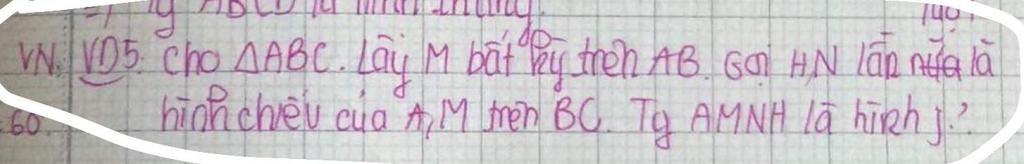 Tg ABCD là hình thang.
VN. VD5. Cho ΔABC. Lấy M bất kỳ trên AB. Gọi H,N lần là
60. hình chiếu của A, M trên BC. Tg AMNH là hình j?